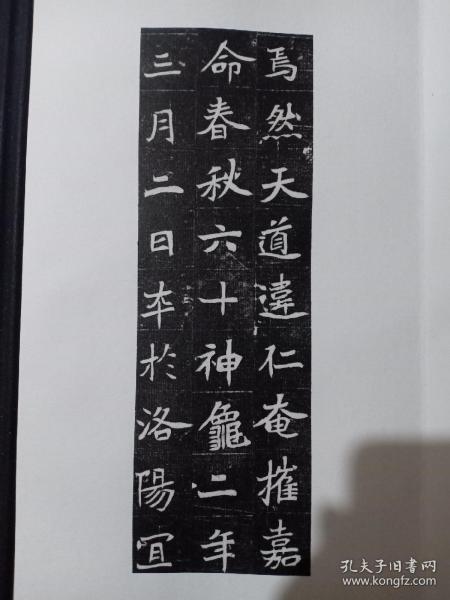 焉然天道違仁奄摧嘉
命春秋六十神龜二年
三月二日卒於洛陽宜
孔夫子旧书网
www.kongfz.com